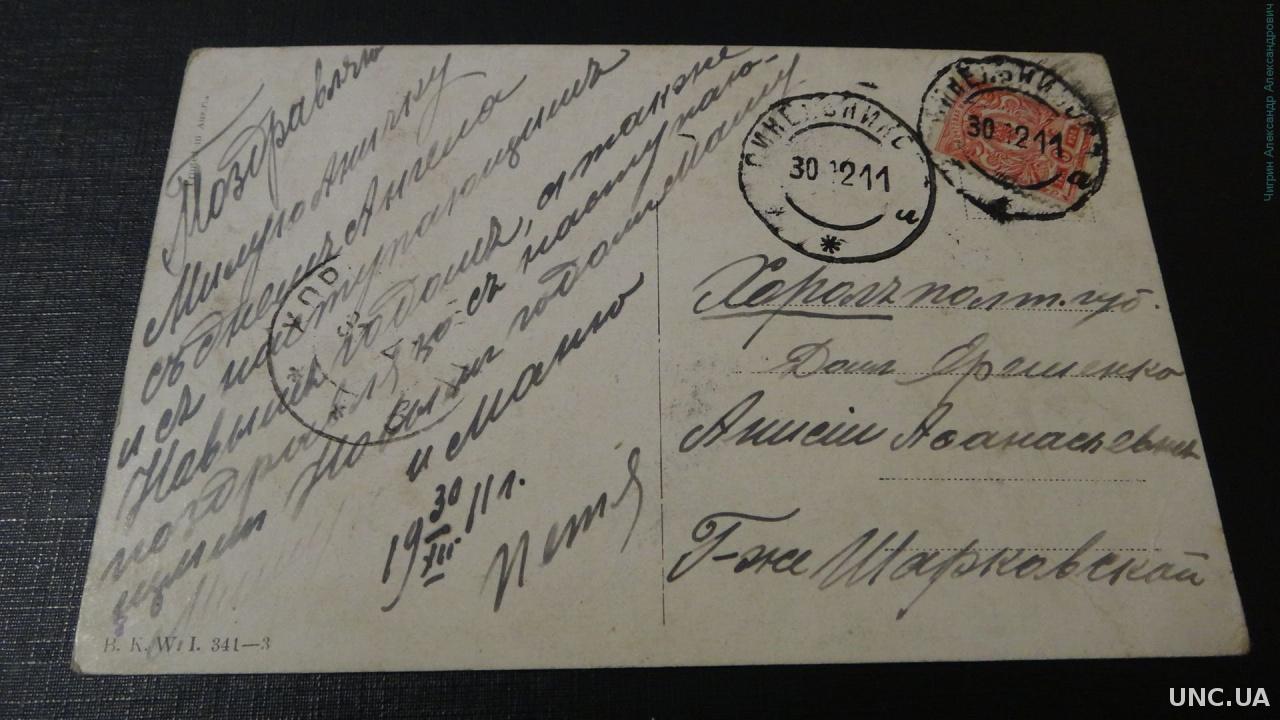 Поздравляю
Милую Аничку
съ днемъ Ангела
и съ наступающимъ
Новымъ годомъ, а также
поздравляю съ наступаю-
щимъ Новымъ годомъ Мамму
и Маню
19 30/XII 11 г.
Петя
B. K. W. I. 341—3
30 12 11
а
30 12 11
а
Хоролъ полт. губ.
Домъ Ерешенко
Анисіи Афанасьевнѣ
Г-же Шарковской
Чигрин Александр Александрович
UNC.UA